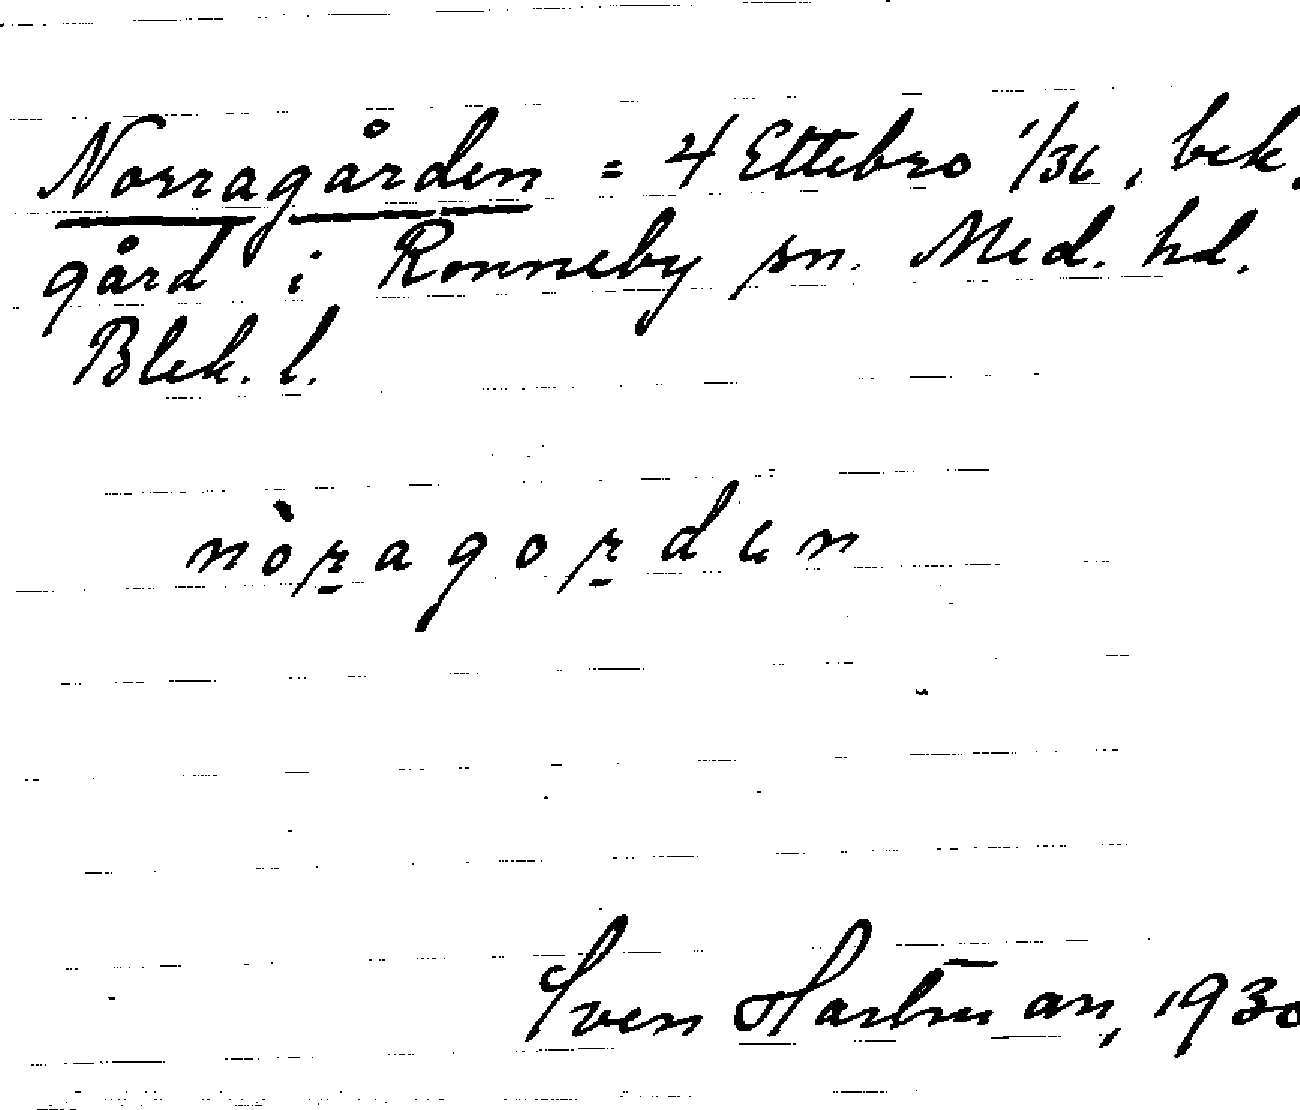 Norragården = 4 Ettebro 1/36, bek.
gård i Ronneby sn. Med. hd.
Blek. l.
nòr̲agor̲dɛn
Sven Hartman, 1930